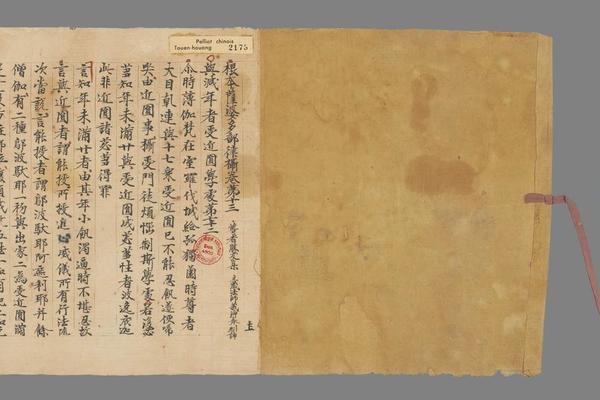 Pelliot chinois
Touen-houang 2175
根本薩婆多部律攝卷第十三 尊者勝友集 三藏法師義淨奉制譯
與減年者受近圓學處第七十二
尒時薄伽梵在室羅伐城給孤獨園時尊者
大目乹連與十七衆受近圓已不能忍飢遂便啼
哭由近圓事攝受門徒煩惱制斯學處若復苾
芻知年未滿廿與受近圓成苾芻性者波逸底迦
此非近圓諸苾芻得罪
言知年未滿廿者由其年小飢渴逼時不堪忍故
言與近圓者謂能授所授進止威儀所有行法流
次當說言能授者謂鄔波馱耶阿遮利耶并餘
僧伽有二種鄔波馱耶一初與出家二為受近圓